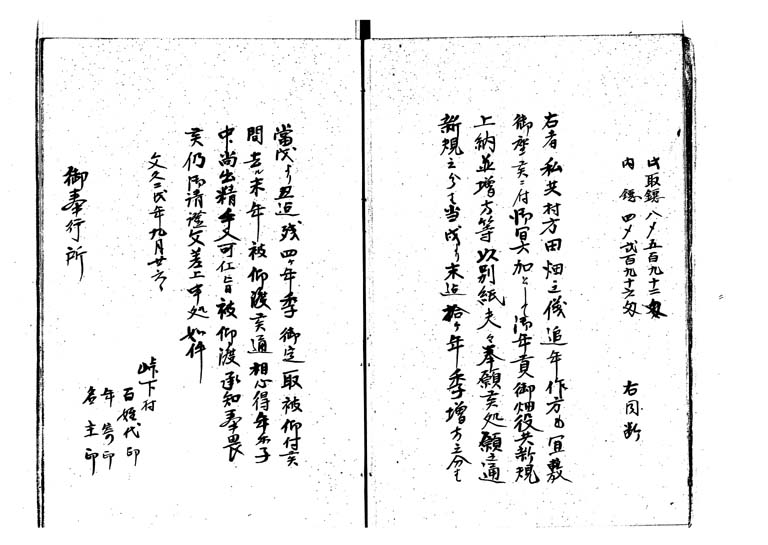 此取鐚八〆五百九十二匁
内鐚四〆弐百九十六匁 右同断
右者私共村方田畑之儀追年作方も宜敷
御座候ニ付御冥加として御年貢御畑役共新規
上納並増方等以別紙夫々奉願候処願之通
新規之分者当戌より未迄拾ヶ年季増方之分者
當戌より丑迄残四ヶ年季御定取被仰付候
間去ル未年被仰渡候通相心得
中尚出精手入可仕旨被仰渡承知奉畏
候仍御請證文差上申処如件
文久二戌年九月廿六日
峠下村
百姓代印
年寄印
名主印
御奉行所